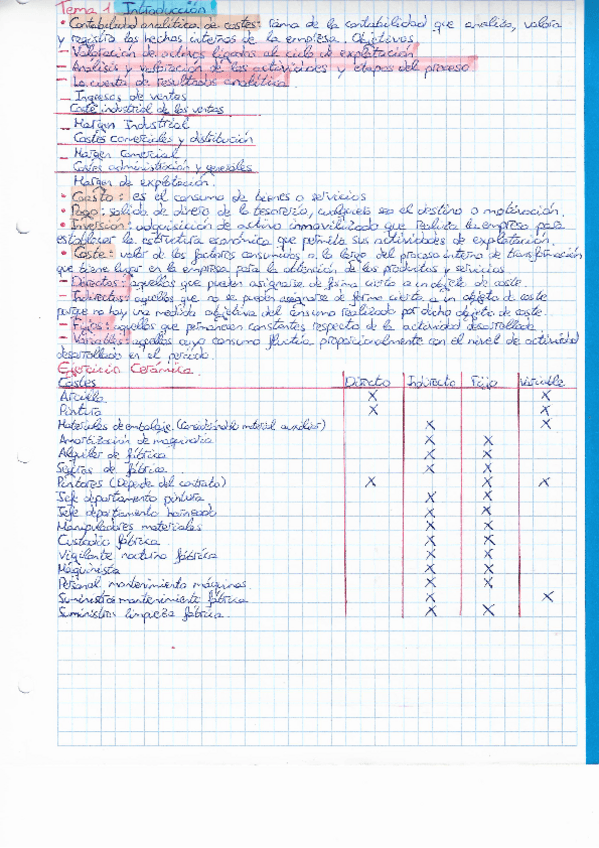 Tema 1 Introducción
• Contabilidad analítica de costes: rama de la contabilidad que analiza, valora
y registra los hechos internos de la empresa. Objetivos
- Valoración de activos ligados al ciclo de explotación
- Análisis y valoración de las actividades y etapas del proceso
- La cuenta de resultados analítica
- Ingresos de ventas
Coste industrial de las ventas
- Margen Industrial
Costes comerciales y distribución
- Margen Comercial
Costes administración y generales
Margen de explotación.
• Gasto: es el consumo de bienes o servicios
• Pago: salida de dinero de la tesorería, cualquiera sea el destino o motivación.
• Inversión: adquisición de activo inmovilizado que realiza la empresa para
establecer la estructura económica que permita sus actividades de explotación.
• Coste: valor de los factores consumidos a lo largo del proceso interno de transformación
que tiene lugar en la empresa para la obtención de los productos y servicios
- Directos: aquellos que pueden asignarse de forma cierta a un objeto de coste.
- Indirectos: aquellos que no se pueden asignarse de forma cierta a un objeto de coste
porque no hay una medida objetiva del consumo realizado por dicho objeto de coste.
- Fijos: aquellos que permanecen constantes respecto de la actividad desarrollada.
- Variables: aquellos cuyo consumo fluctúa proporcionalmente con el nivel de actividad
desarrollado en el período.
Ejercicio Cerámica.
Costes Directo Indirecto Fijo Variable
Arcilla X X
Pintura X X
Materiales de embalaje. (Considerable material auxiliar) X X
Amortización de maquinaria X X
Alquiler de fábrica X X
Seguros de fábrica X X
Pintores (Depende del contrato) X X X
Jefe departamento pintura X X
Jefe departamento horneado X X
Manipuladores materiales X X
Custodio fábrica X X
Vigilante nocturno fábrica X X
Maquinista X X
Personal mantenimiento máquinas X X
Suministros mantenimiento fábrica X X
Suministros limpieza fábrica. X X